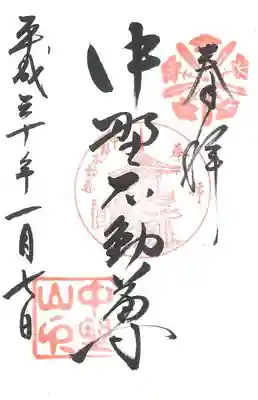 奉拝
中野不動尊
平成三十年一月七日
中野
山印